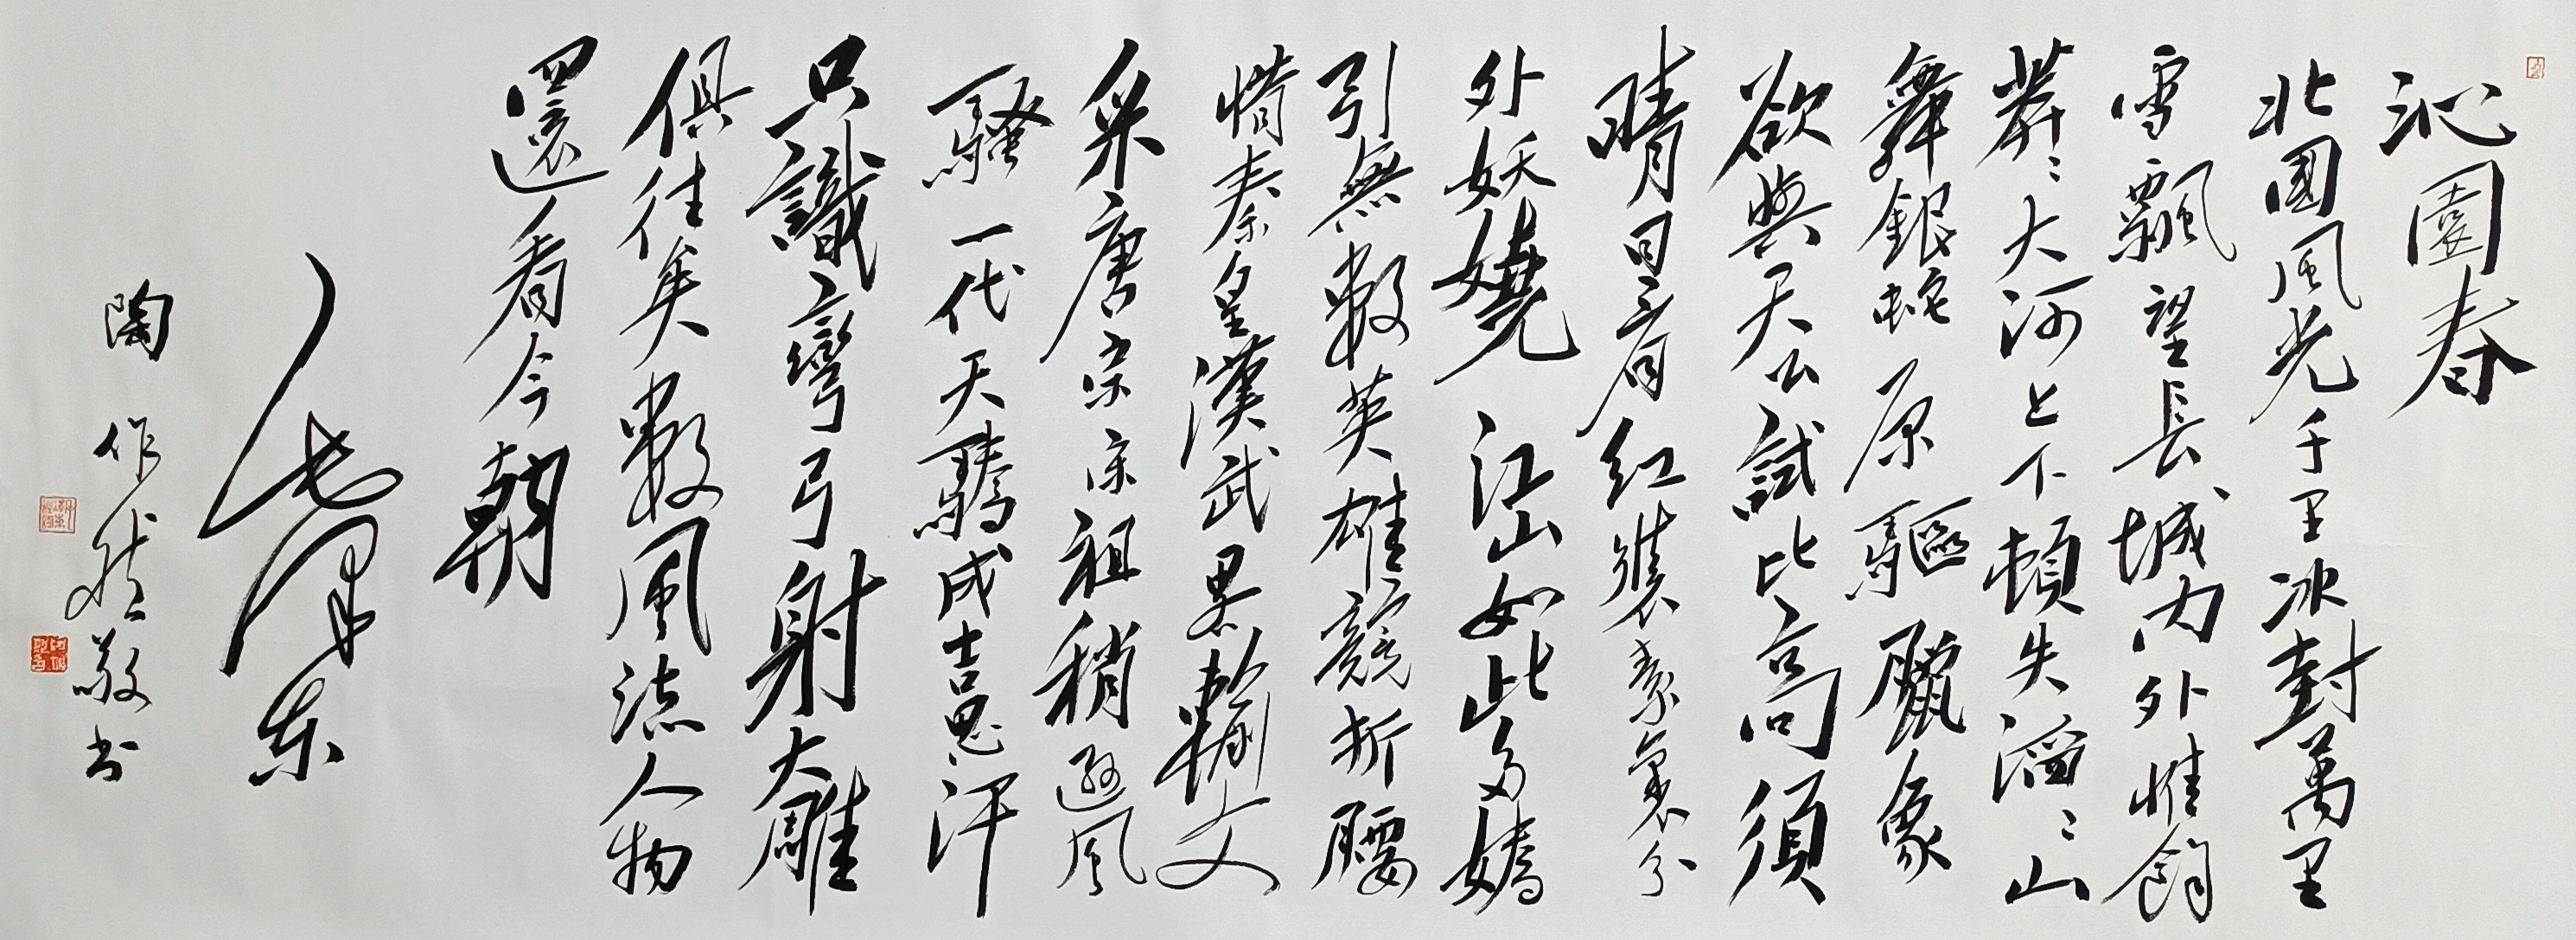 沁園春
北國風光千里冰封萬里
雪飄望長城內外惟餘
莽〻大河上下頓失滔〻山
舞銀蛇原驅臘象
欲與天公試比高須
晴日看紅裝素裹分
外妖嬈江山如此多嬌
引無數英雄競折腰
惜秦皇漢武畧輸文
采唐宗宋祖稍遜風
騷一代天驕成吉思汗
只識彎弓射大雕
俱往矣數風流人物
還看今朝
毛澤東
陶作敬书